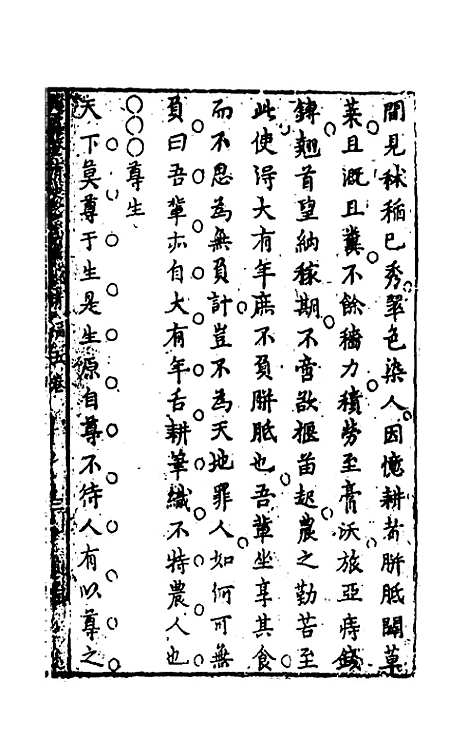 間見秫稲已秀翠色染人因憶耕者胼胝闢草
萊且溉且糞不餘穡力積勞至膏沃旅亞庤錢
鎛翹首望納稼期不啻㰱堰苗起農之勤苦至
此使得大有年庶不負胼胝也吾輩坐享其食
而不思為無負計豈不為天地罪人如何可無
負曰吾輩亦自大有年舌耕筆織不特農人也
○○○尊生
天下莫尊于生是生原自尊不待人有以尊之